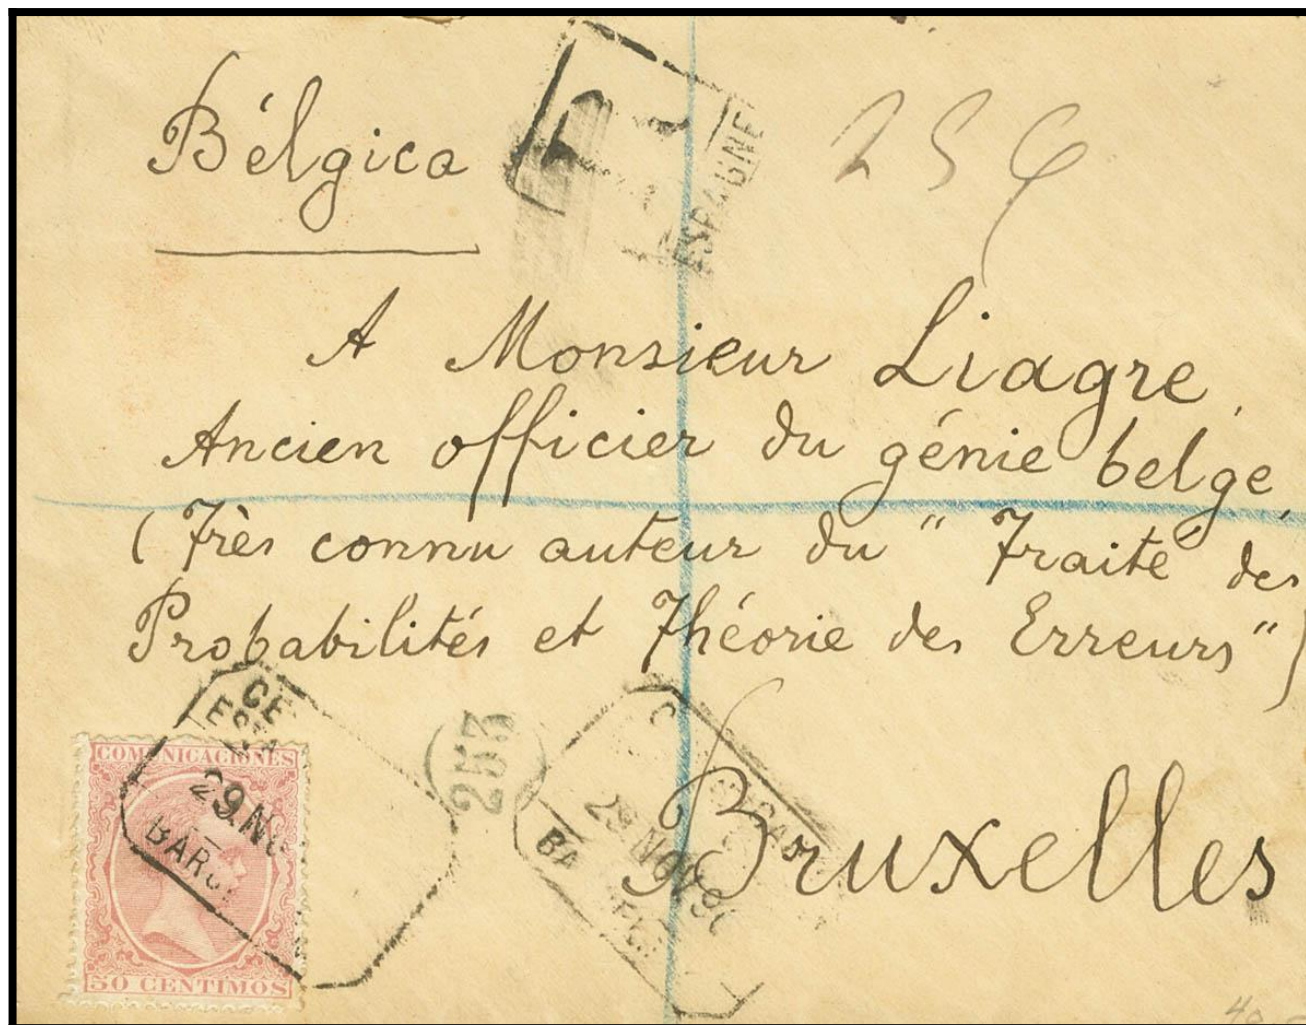 Bélgica
ESPAGNE
256
A Monsieur Liagre,
Ancien officier du génie belge,
(Très connu auteur du "Traité des
Probabilités et Théorie des Erreurs")
Bruxelles
253
29 NOV 90
COMUNICACIONES
29 NO
BARC
50 CENTIMOS
40